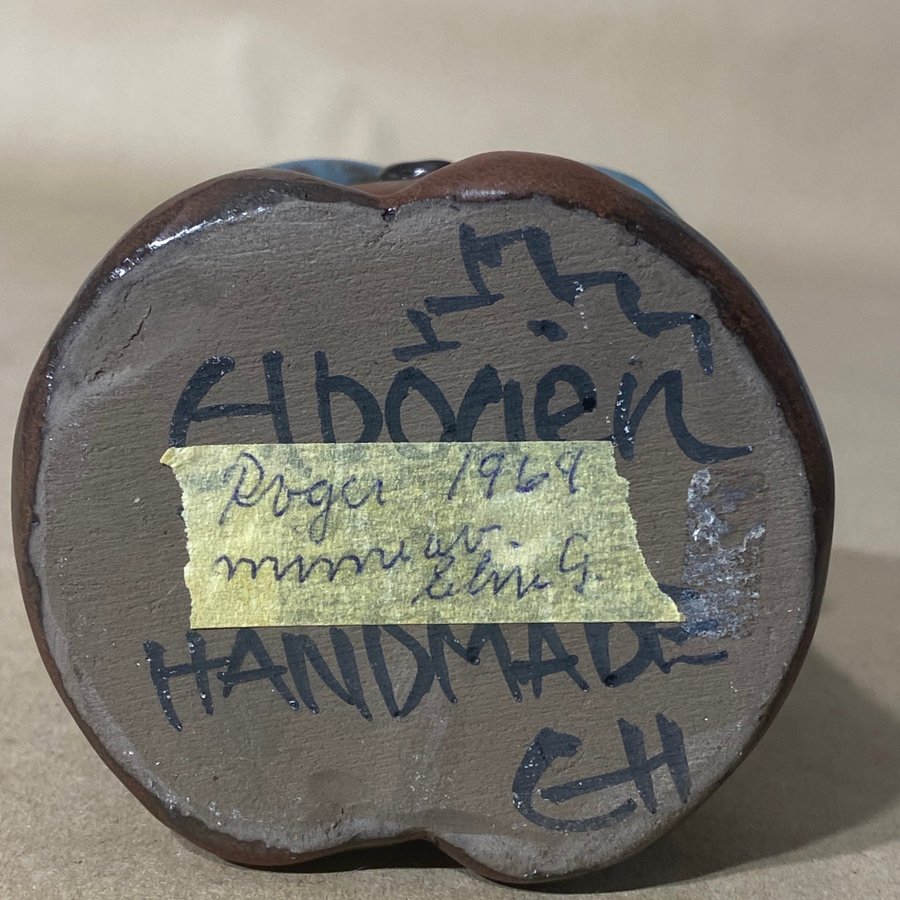 Elbogen
Roger 1964
minne av
Elin G.
HANDMADE
EH